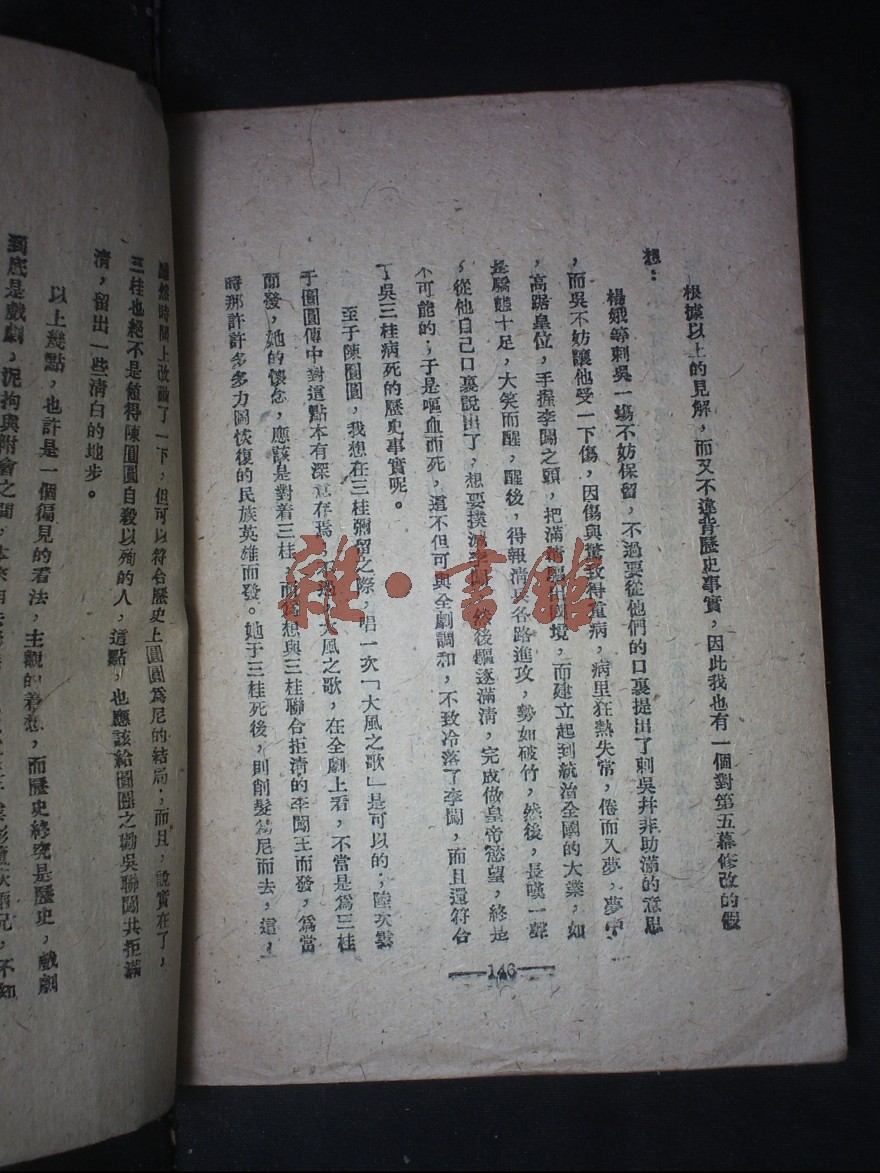 根據以上的見解，而又不違背歷史事實，因此我也有一個對第五幕修改的假
想：
楊娥等刺吳一場不妨保留，不過要從他們的口裏提出了刺吳并非助滿的意思
，而吳不妨讓他受一下傷，因傷與驚致得重病，病里狂熱失常，倦而入夢，夢中
，高踞皇位，手握李闖之頭，把滿清驅出國境，而建立起到統治全國的大業，如
是驕態十足，大笑而醒，醒後，得報清兵各路進攻，勢如破竹，然後，長嘆一聲
，從他自己口裏說出了，想要撲滅李闖，然後驅逐滿清，完成做皇帝慾望，終是
不可能的；于是嘔血而死，這不但可與全劇調和，不致冷落了李闖，而且還符合
了吳三桂病死的歷史事實呢。
至于陳圓圓，我想在三桂彌留之際，唱一次「大風之歌」是可以的；陸次雲
于圓圓傳中對這點本有深意存焉，不過，大風之歌，在全劇上看，不當是爲三桂
而發，她的懷念，應該是對着三桂，而爲想與三桂聯合拒清的李闖王而發，爲當
時那許許多多力圖恢復的民族英雄而發。她于三桂死後，則削髮爲尼而去，這，
雖然時間上改動了一下，但可以符合歷史上圓圓爲尼的結局；而且，說實在了，
三桂也絕不是值得陳圓圓自殺以殉的人，這點，也應該給圓圓之勸吳聯闖共拒滿
清，留出一些清白的地步。
以上幾點，也許是一個偏見的看法，主觀的着想，而歷史終究是歷史，戲劇
到底是戲劇，泥拘與附會之間，
兄，不知
146
雜·書館